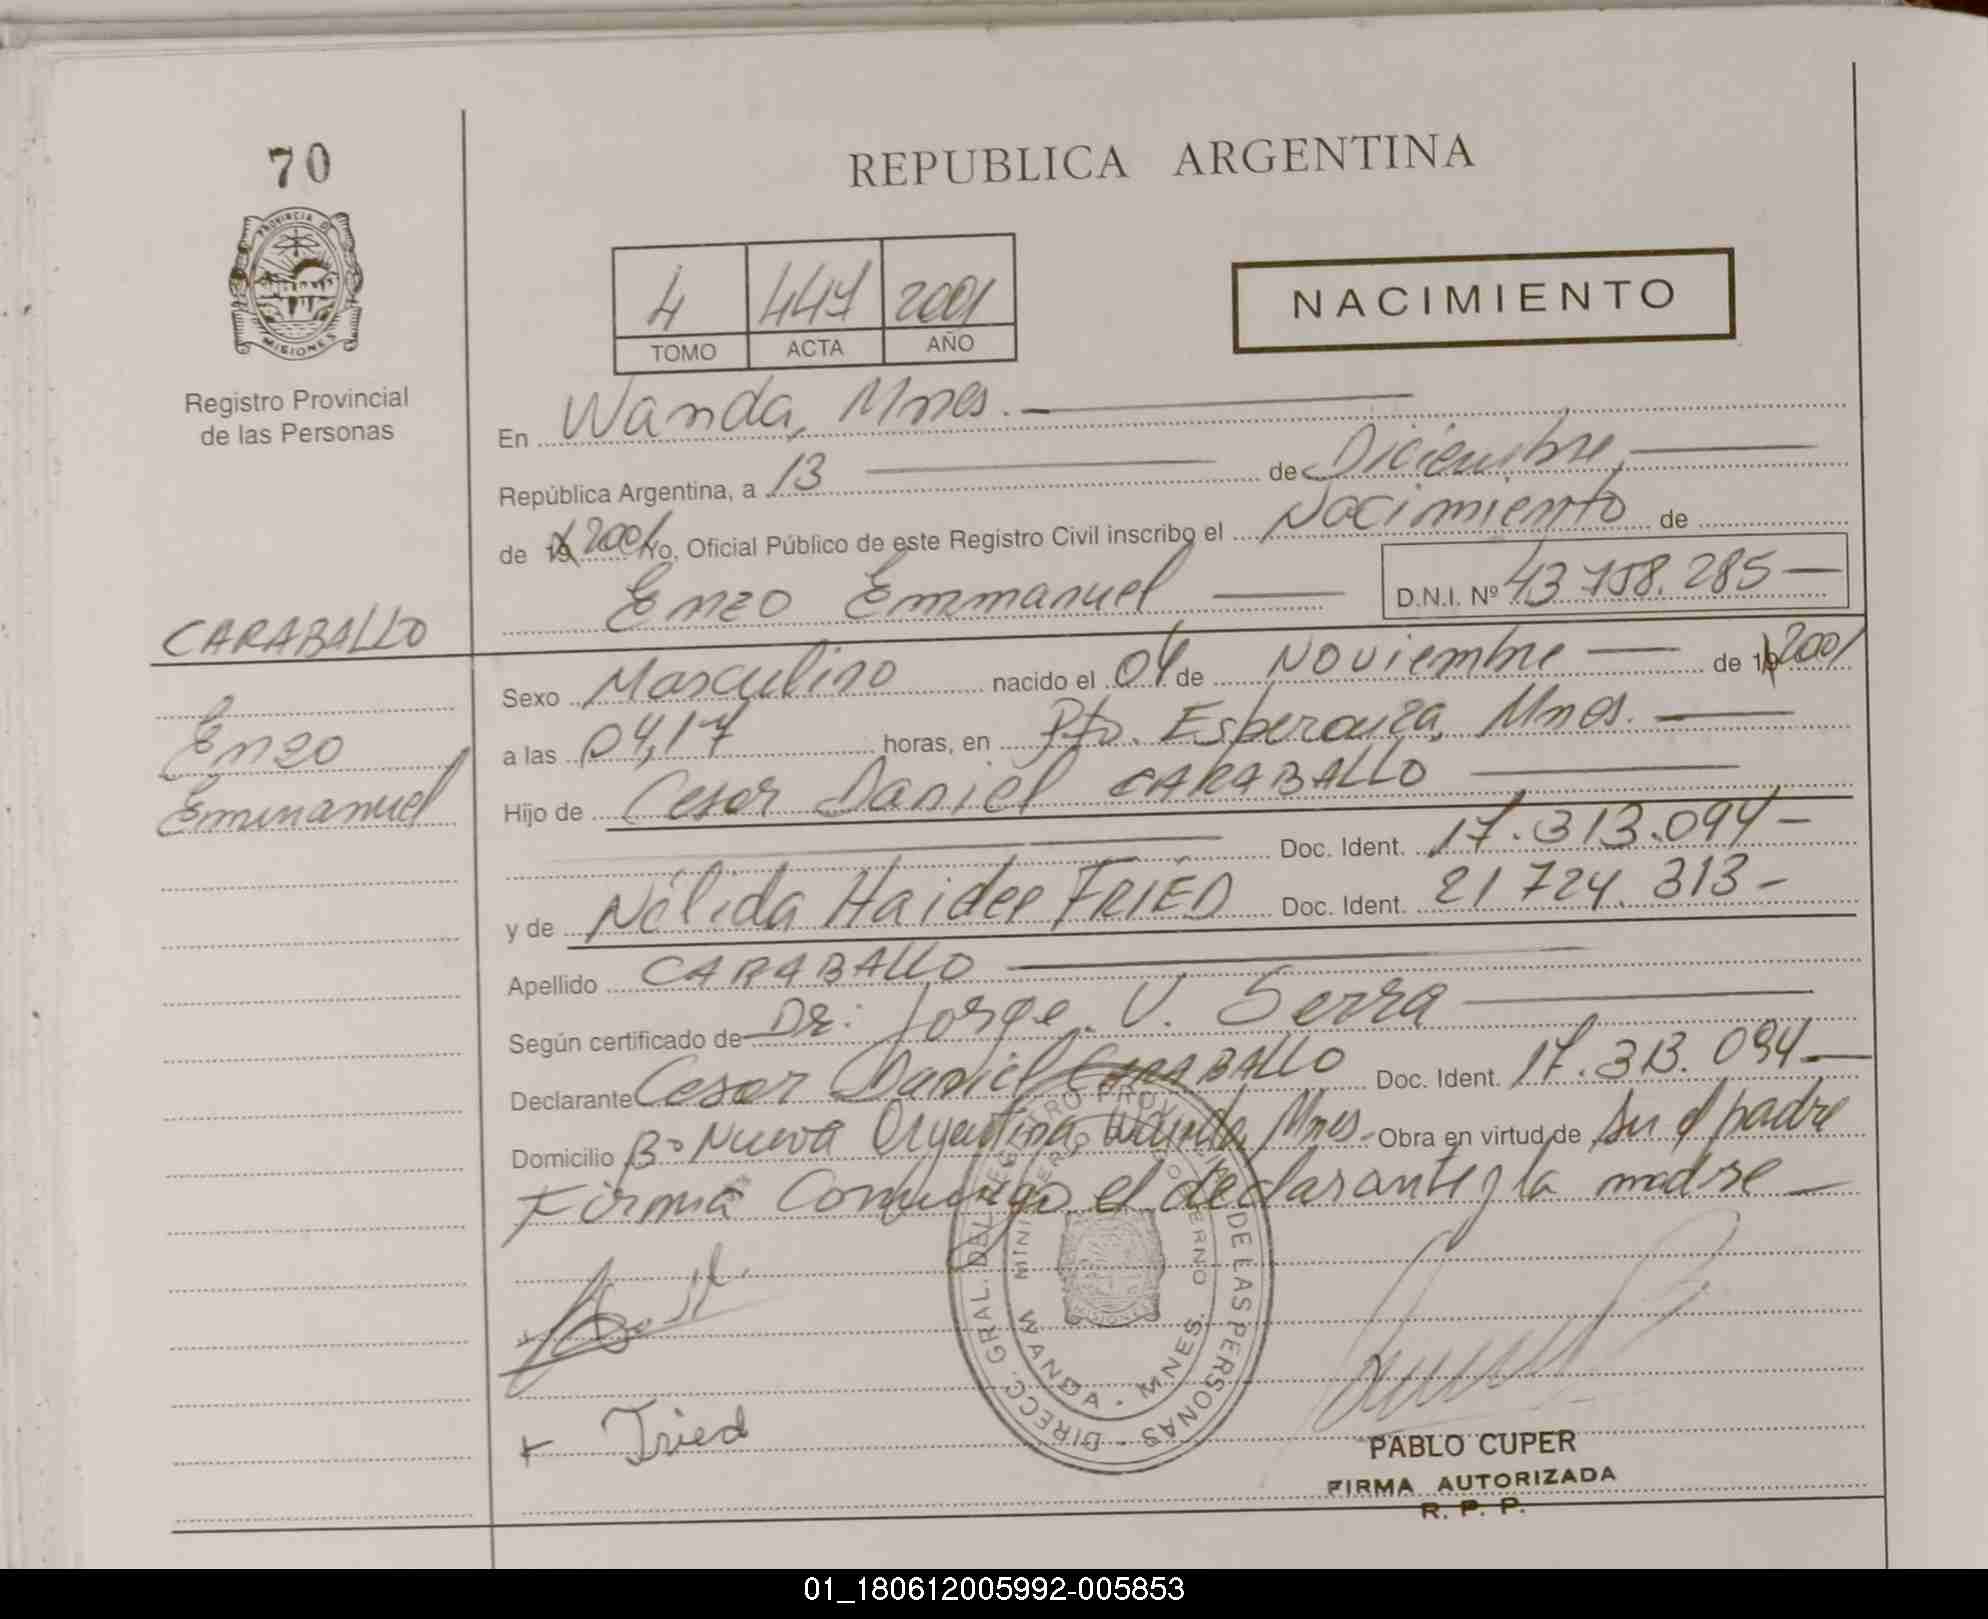 70
REPUBLICA ARGENTINA
PROVINCIA DE
MISIONES
Registro Provincial
de las Personas
4 447 2001
TOMO ACTA AÑO
NACIMIENTO
En Wanda, Mnes.
República Argentina, a 13 de Diciembre,
de 19 2001 Yo, Oficial Público de este Registro Civil inscribo el Nacimiento de
Enzo Emmanuel D.N.I. Nº 43 758.285
CARABALLO
Enzo
Emmanuel
Sexo Masculino nacido el 04 de Noviembre de 19 2001
a las 04,17 horas, en Pto. Esperanza, Mnes.
Hijo de Cesar Daniel CARABALLO
Doc. Ident. 17.313.094
y de Nélida Haidee FRIED Doc. Ident. 21 724.313
Apellido CARABALLO
Según certificado de Dr: Jorge. V. Serra
Declarante Cesar Daniel CARABALLO Doc. Ident. 17.313.094
Domicilio Bº Nueva Argentina, Wanda, Mnes. Obra en virtud de Ser el padre
Firma Conmigo el declarante y la madre
DIRECC. GRAL. DEL REGISTRO PROV. DE LAS PERSONAS
MINISTERIO GOBIERNO
WANDA - MNES.
Fried
PABLO CUPER
FIRMA AUTORIZADA
R. P. P.
01_180612005992-005853